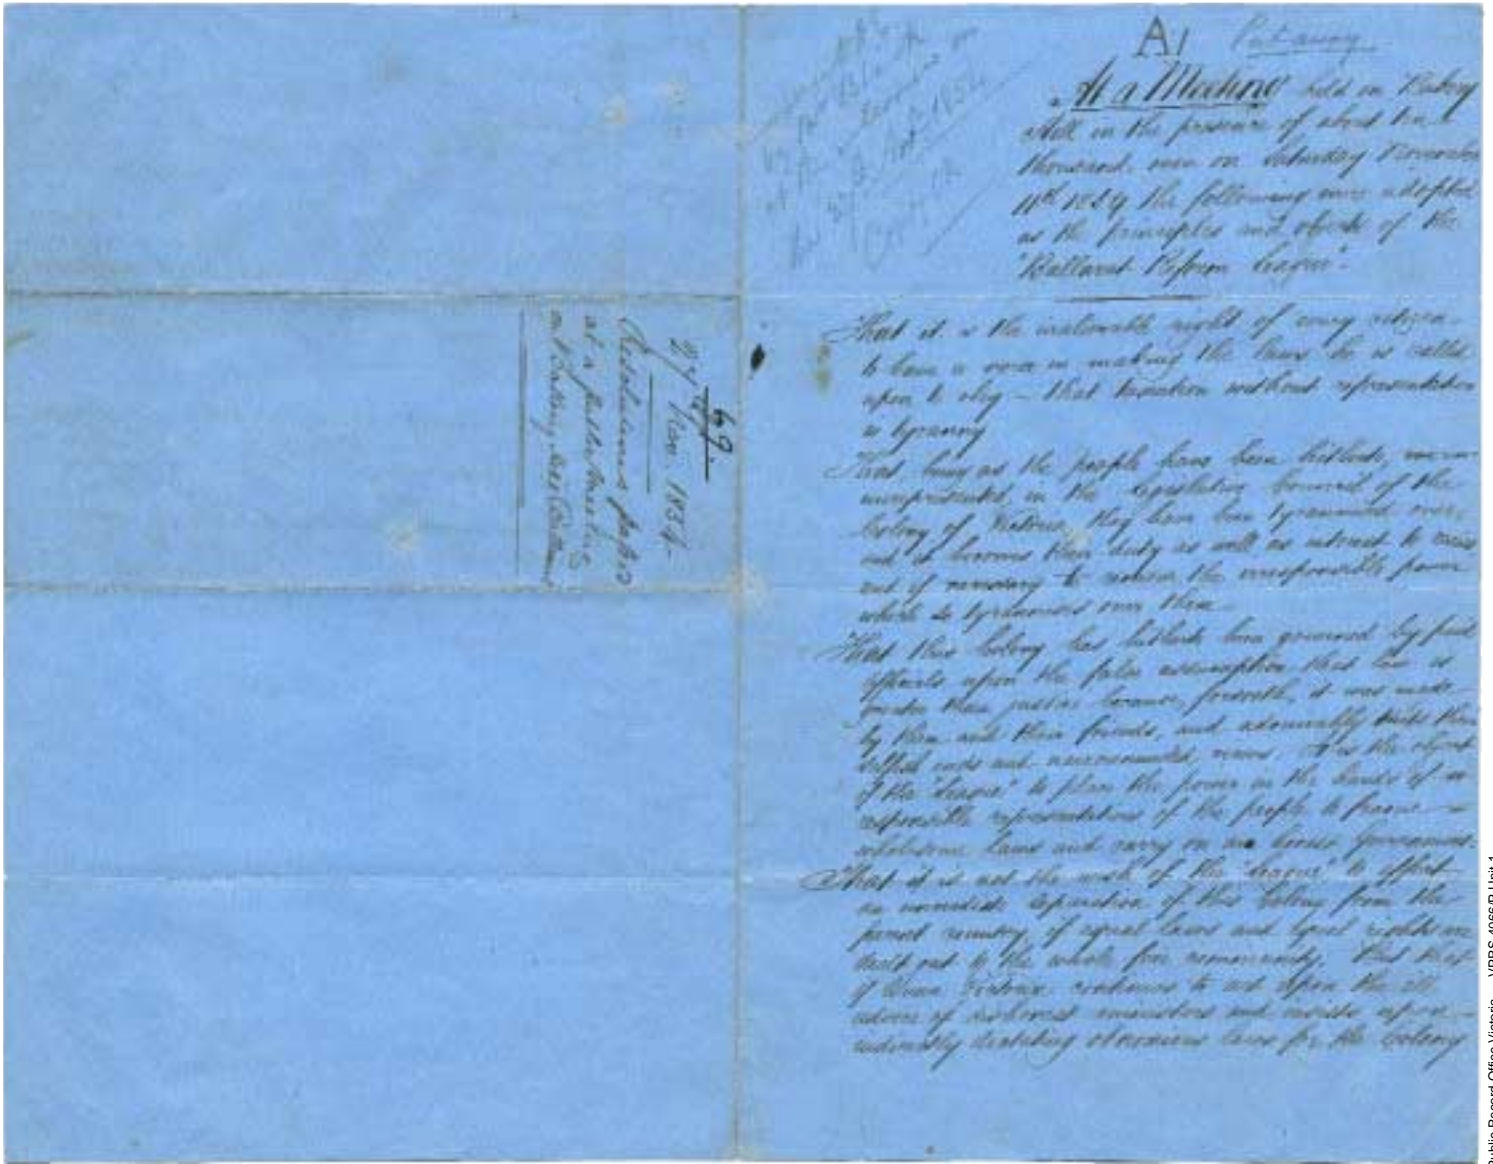 A1 Put away
At a Meeting held on Bakery
Hill in the presence of about ten
thousand men on Saturday November
11th 1854 the following were adopted
as the principles and objects of the
"Ballarat Reform League".
That it is the inalienable right of every citizen
to have a voice in making the laws he is called
upon to obey — that taxation without representation
is tyranny
That, being as the people have been hitherto,
unrepresented in the Legislative Council of the
Colony of Victoria, they have been tyrannised over,
and it becomes their duty as well as interest to resist
and if necessary to remove the irresponsible power
which so tyrannises over them.
That this Colony has hitherto been governed by paid
officials upon the false assumption that law is
greater than justice because, forsooth, it was made
by them and their friends, and admirably suits their
selfish ends and narrowminded views. It is the object
of the "League" to place the power in the hands of
responsible representatives of the people to frame
wholesome laws and carry on an honest Government.
That it is not the wish of the "League" to effect
an immediate separation of this Colony from the
parent country, if equal laws and equal rights are
dealt out to the whole free community. But that
if Queen Victoria continues to act upon the ill
advice of dishonest ministers and insists upon
indirectly dictating obnoxious laws for the Colony
69
27 Nov. 1854
Resolutions passed
at a public Meeting
on Bakery Hill Ballarat
Public Record Office Victoria VPRS 4066/P Unit 1